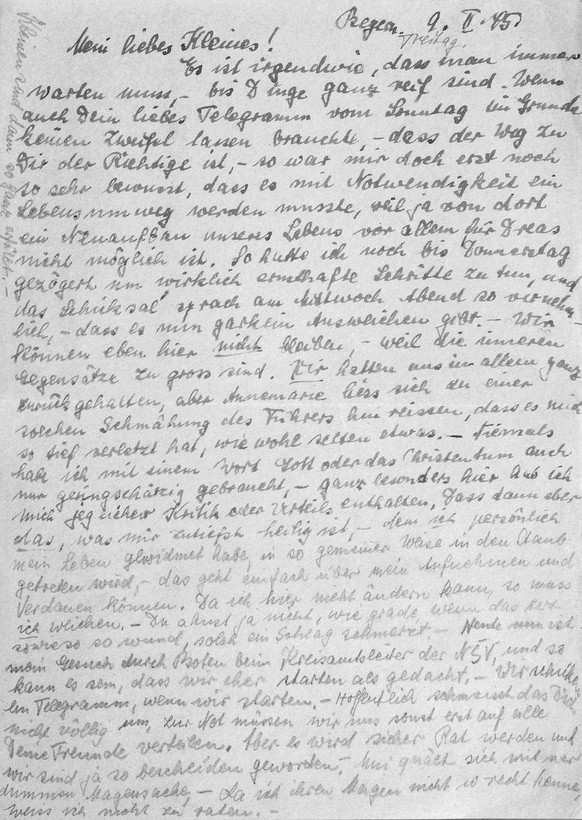 Begern, 9. II. 45.
Freitag.
Mein liebes Kleines!
Es ist irgendwie, dass man immer
warten muss, - bis Dinge ganz reif sind. Wenn
auch Dein liebes Telegramm vom Sonntag im Grunde
keinen Zweifel lassen brauchte, - dass der Weg zu
Dir der Richtige ist, - so war mir doch erst noch
so sehr bewusst, dass es mit Notwendigkeit ein
Lebensumweg werden musste, weil ja von dort
ein Neuaufbau unseres Lebens vor allem für Dreas
nicht möglich ist. So hatte ich noch bis Donnerstag
gezögert um wirklich ernsthafte Schritte zu tun, und
das Schicksal sprach am Mittwoch Abend so vernehm-
lich, - dass es nun garkein Ausweichen gibt. - Wir
können eben hier nicht bleiben, - weil die inneren
Gegensätze zu gross sind. Wir hatten uns in allem ganz
zurückgehalten, aber Annemarie liess sich zu einer
solchen Schmähung des Führers hinreissen, dass es mich
so tief verletzt hat, wie wohl selten etwas. - Niemals
habe ich mit einem Wort Gott oder das Christentum auch
nur geringschätzig gebraucht, - ganz besonders hier hab ich
mich jeglicher Kritik oder Urteils enthalten. Dass dann aber
das, was mir zutiefst heilig ist, - dem ich persönlich
mein Leben gewidmet habe, in so gemeiner Weise in den Staub
getreten wird, - das geht einfach über mein Aufnehmen und
Verdauen können. Da ich hier nicht ändern kann, so muss
ich weichen. - Du ahnst ja nicht, wie grade, wenn das Herz
sowieso so wund, solch ein Schlag schmerzt. - Heute nun ist
mein Gesuch durch Boten beim Kreisamtsleiter der NSV, und so
kann es sein, dass wir eher starten als gedacht. - Wir schicken
ein Telegramm, wenn wir starten. - Hoffentlich schmeisst das Dich
nicht völlig um, zur Not müssen wir uns sonst erst auf alle
Deine Freunde verteilen. Aber es wird sicher Rat werden und
wir sind ja so bescheiden geworden, - quält sich mit ner
dummen Magensache, - da ich ihren Magen nicht so recht kenne,
weiss ich nicht zu raten. -
Kleinen sind dann so ganz erfüllt. -